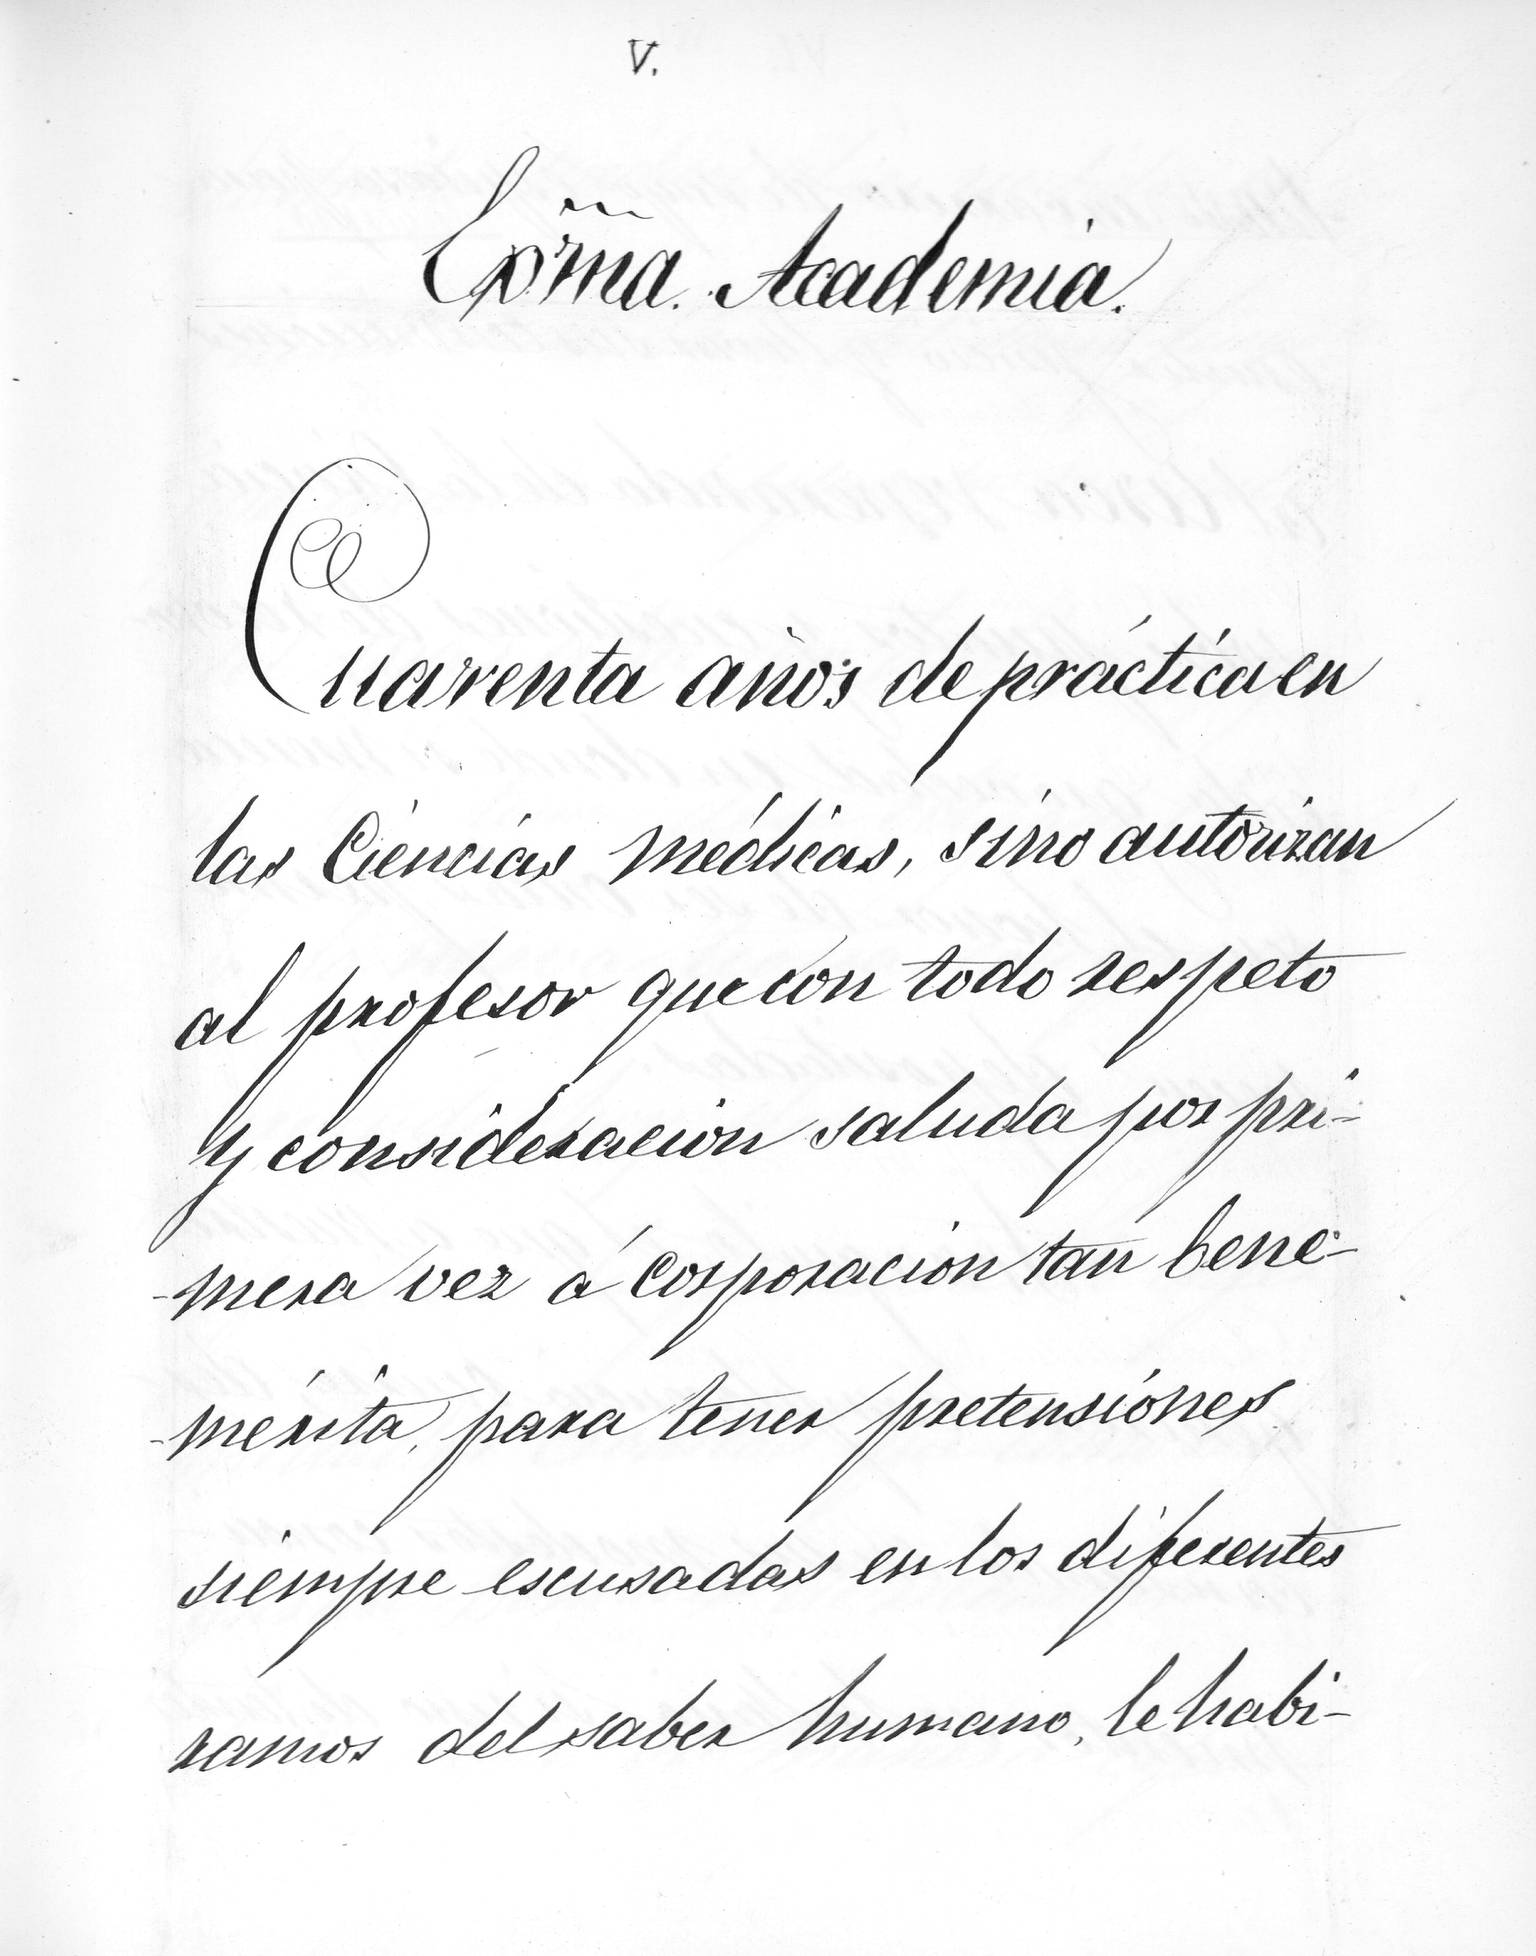 V.
Exm̃a. Academia.
Cuarenta años de práctica en
las Ciencias médicas, sino autorizan
al profesor que con todo respeto
y consideracion saluda por pri-
-mera vez á Corporacion tan bene-
-mérita, para tener pretensiones
siempre escusadas en los diferentes
ramos del saber humano, le habi-